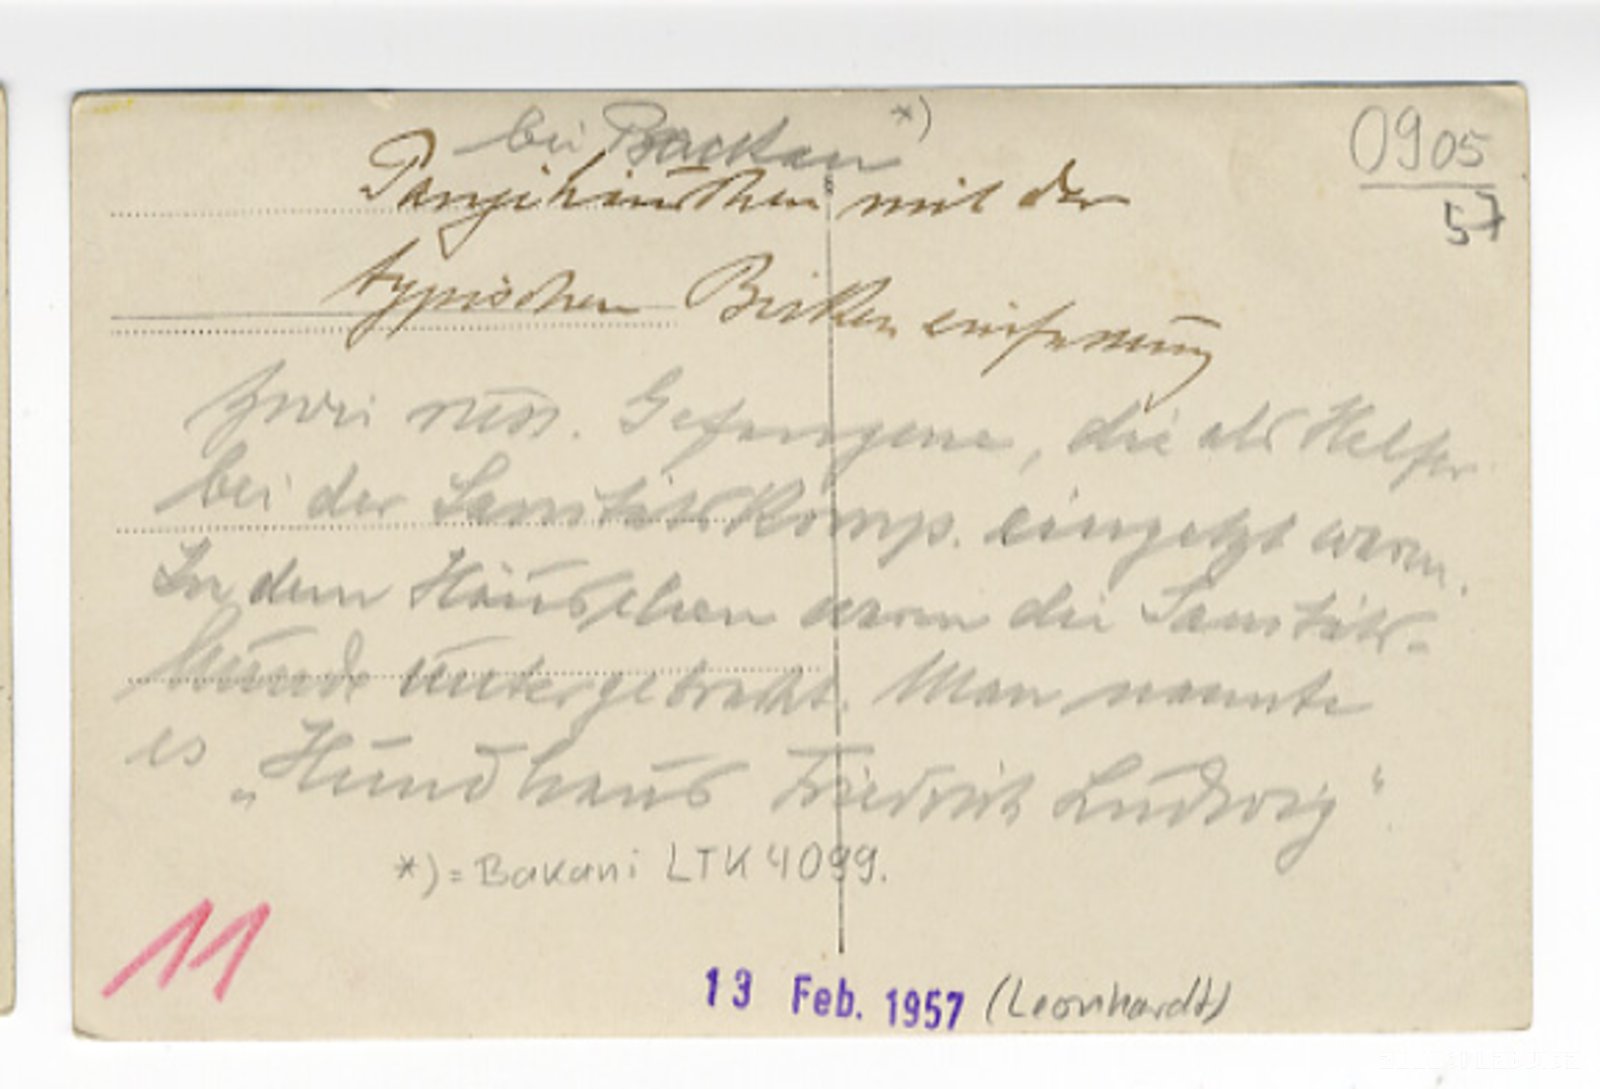 bei Backan *)
0905
57
Panjehäuschen mit der
typischen Birkeneinfassung
Zwei russ. Gefangene, die als Helfer
bei der Sanitätskomp. eingesetzt waren.
In dem Häuschen waren die Sanitäts-
hunde untergebracht. Man nannte
es „Hundhaus Friedrich Ludwig“
*) = Bakani LTK 4099.
11
13 Feb. 1957 (Leonhardt)